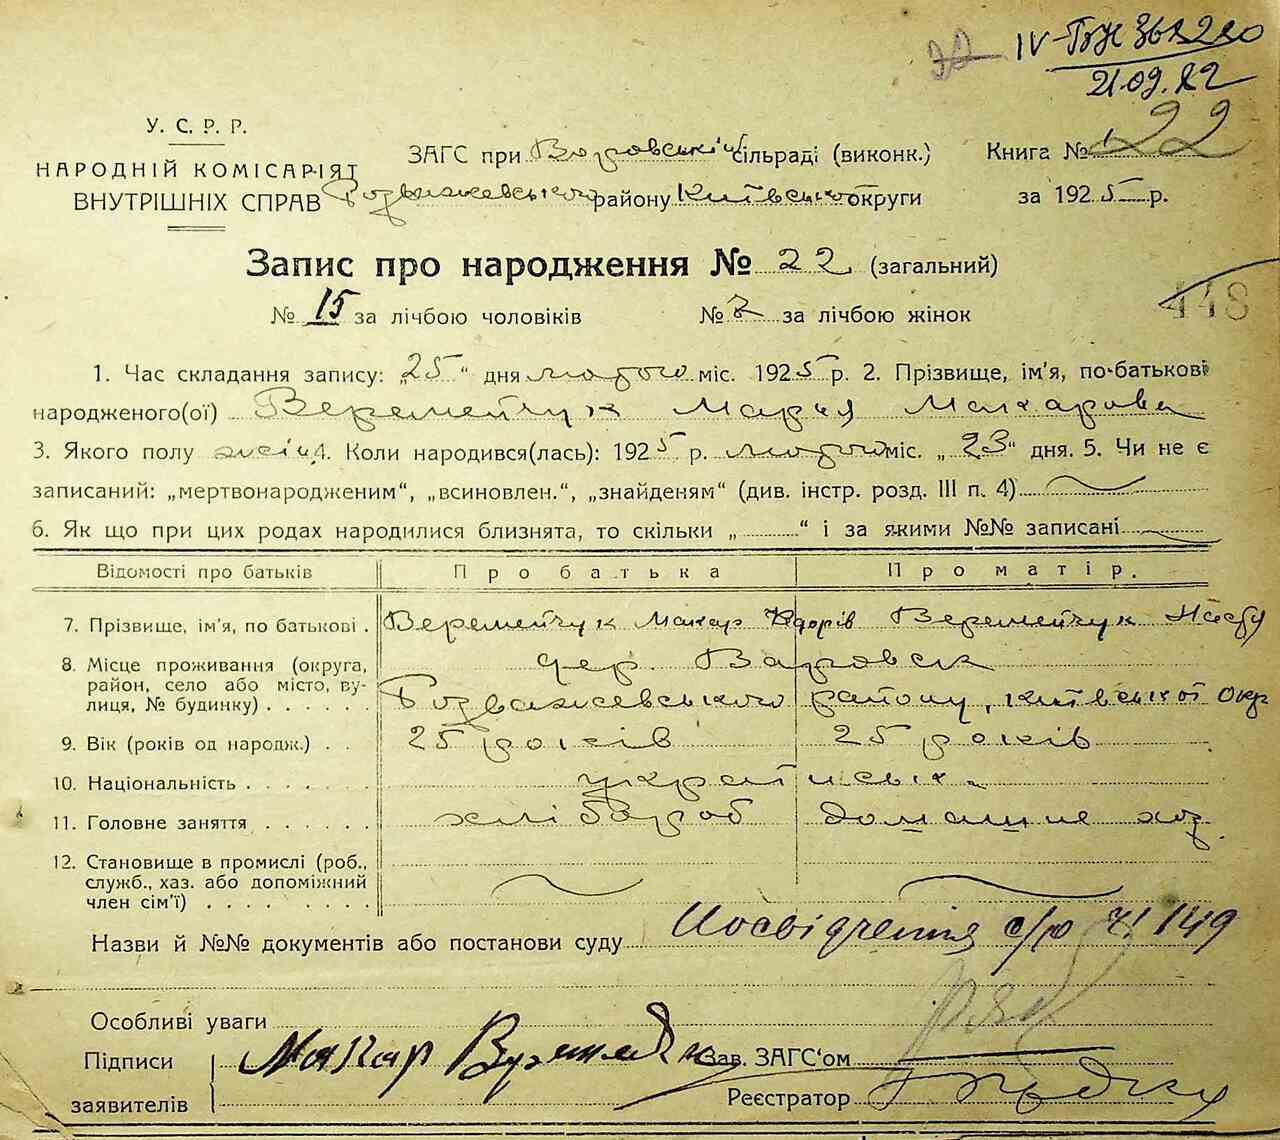 IV-БК 368220
21.09.82
У. С. Р. Р.
НАРОДНІЙ КОМІСАРІЯТ
ВНУТРІШНІХ СПРАВ
ЗАГС при Воровській сільраді (виконк.) Книга № 22
Розважевського району Київської округи за 1925 р.
Запис про народження № 22 (загальний)
448
№ 15 за лічбою чоловіків № 7 за лічбою жінок
1. Час складання запису: „25“ дня лютого міс. 1925 р. 2. Прізвище, ім'я, по-батькові
народженого(ої) Веремейчук Мария Макарова
3. Якого полу жіноч. 4. Коли народився(лась): 1925 р. лютого міс. „23“ дня. 5. Чи не є
записаний: „мертвонародженим“, „всиновлен.“, „знайденям“ (див. інстр. розд. III п. 4)
6. Як що при цих родах народилися близнята, то скільки „ “ і за якими №№ записані
Відомості про батьків Про батька Про матір.
7. Прізвище, ім'я, по батькові . Веремейчук Макар Веремейчук
8. Місце проживання (округа, район, село або місто, вулиця, № будинку) . . . . . . дер. Варовск
Розважевського району, Київської Окр
9. Вік (років од народж.) . . 25 років 25 років
10. Національність . . . . . . . українська
11. Головне заняття . . . . . . хлібороб домашне хоз
12. Становище в промислі (роб.,
служб., хаз. або допоміжний
член сім'ї) . . . . . . . . .
Назви й №№ документів або постанови суду Посвідчення с/р ч. 149
Особливі уваги
Підписи Макар Зав. ЗАГС'ом
заявителів Реєстратор